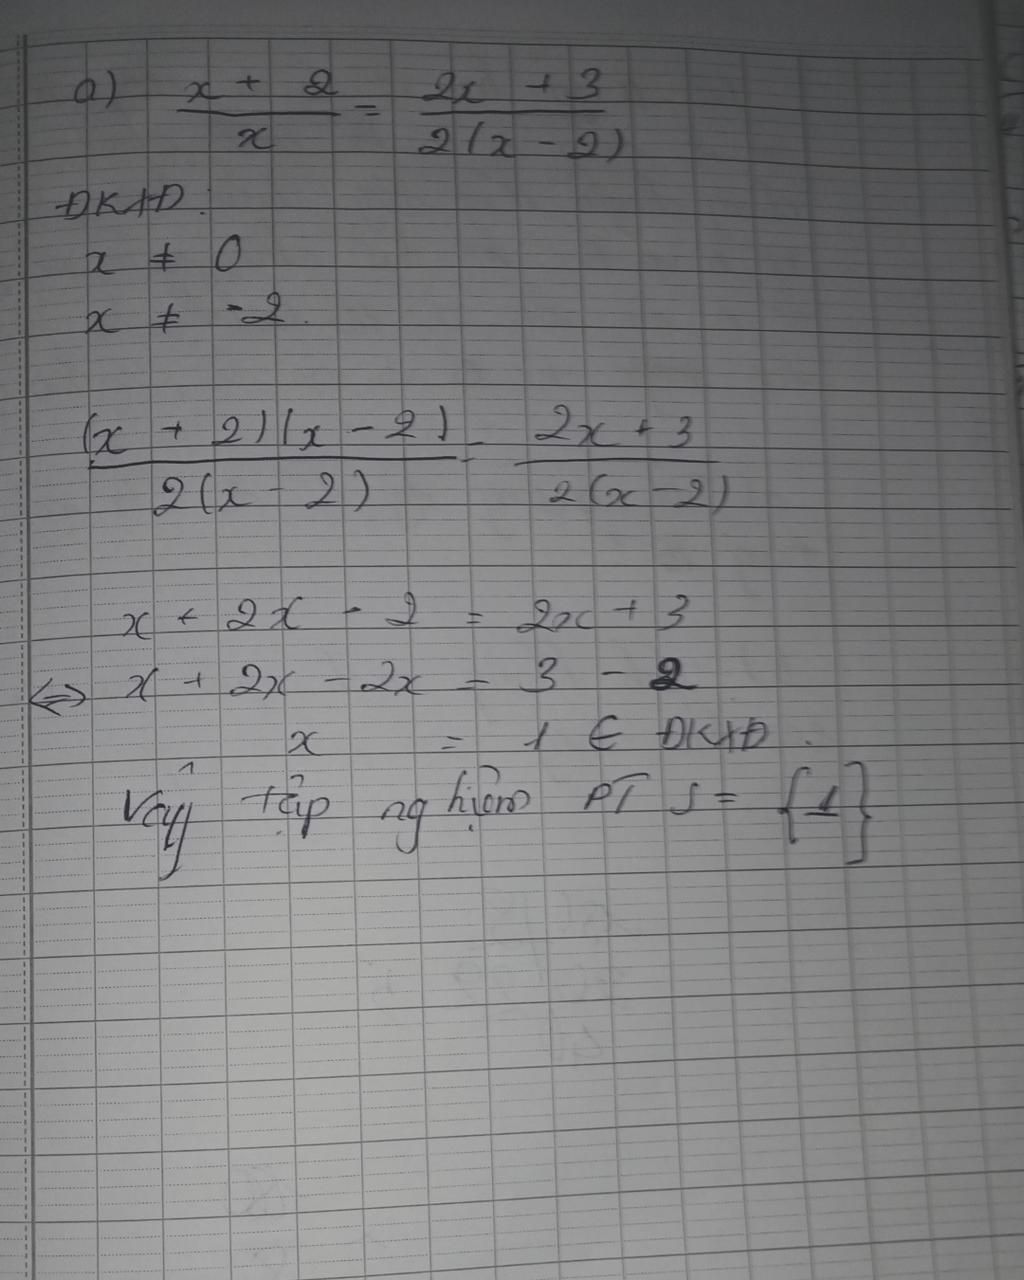 a) \frac{x + 2}{x} = \frac{2x + 3}{2(x - 2)}
ĐKXĐ:
x ≠ 0
x ≠ -2.
\frac{(x + 2)(x - 2)}{2(x - 2)} = \frac{2x + 3}{2(x - 2)}
x + 2x - 2 = 2x + 3
⇔ x + 2x - 2x = 3 - 2
x = 1 ∈ ĐKXĐ.
Vậy tập nghiệm PT S = {1}